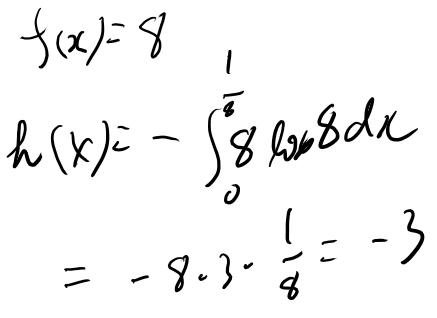 f(x) = 8
h(x) = - ∫₀^{1/8} 8 log 8 dx
= - 8 · 3 · 1/8 = - 3